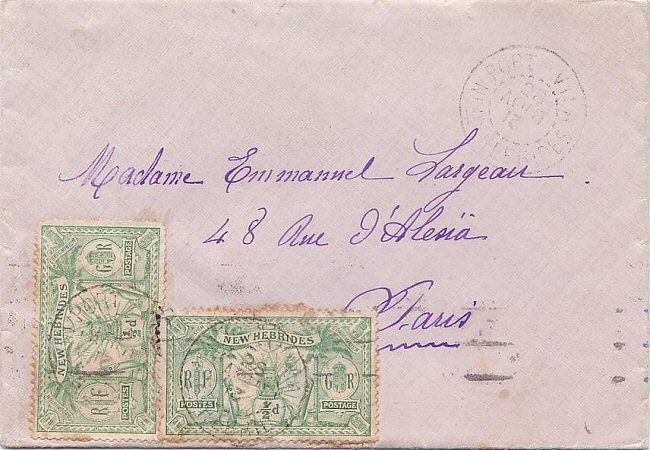 PORT-VILA
Madame Emmanuel Largeau
48 Rue d'Alesia
Paris
NEW HEBRIDES
G R
POSTAGE
½d
R F
POSTES
NEW HEBRIDES
R F
G R
POSTES
½d
POSTAGE